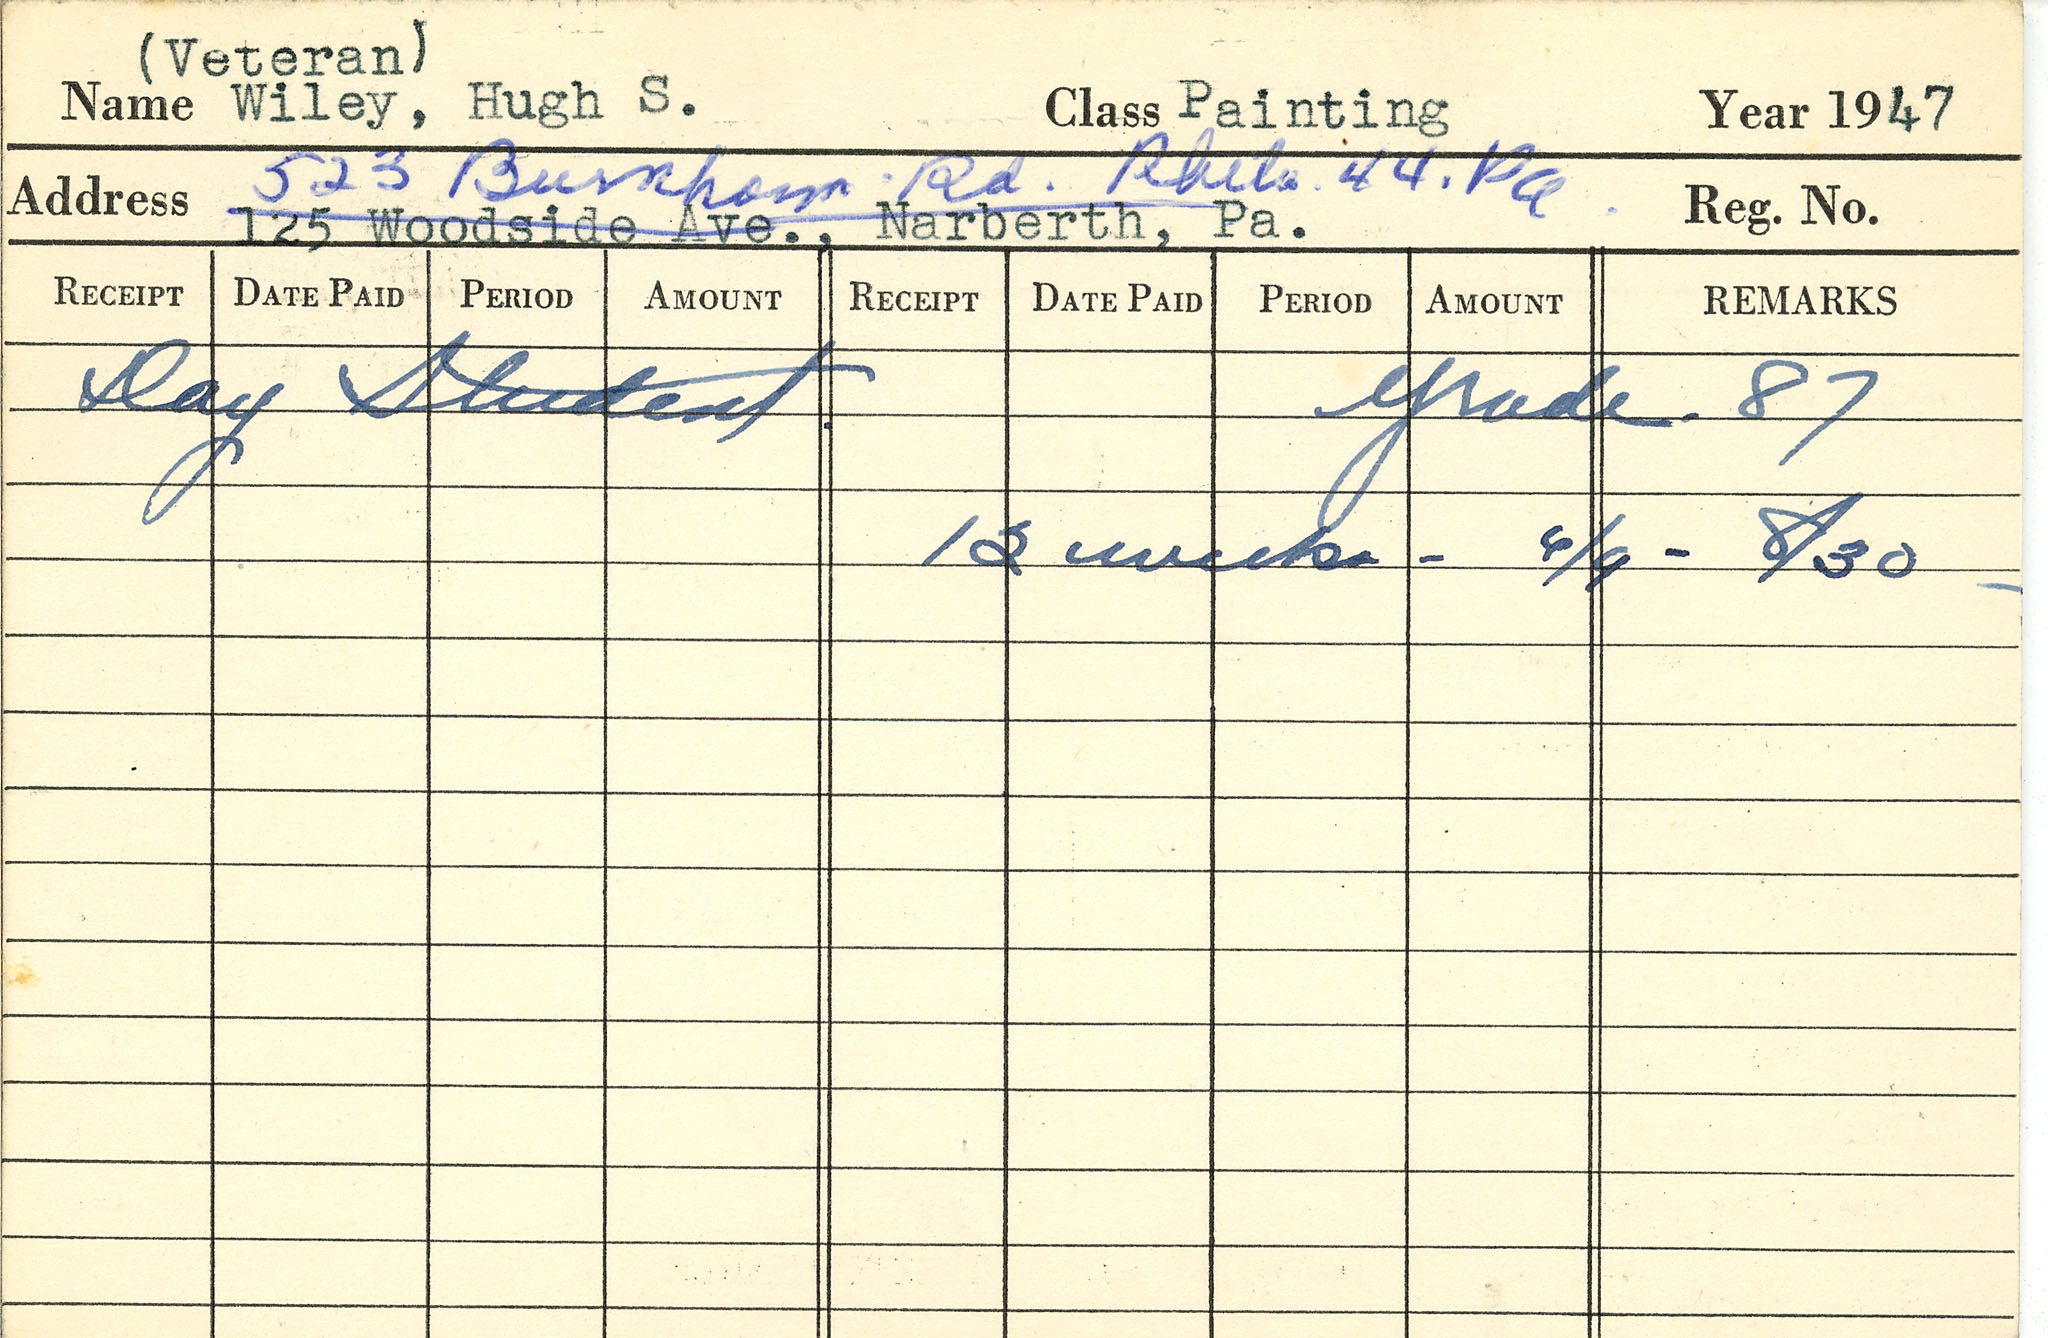 (Veteran)
Name Wiley, Hugh S. Class Painting Year 1947
523 Burnham Rd. Phila. 44. Pa.
Address 125 Woodside Ave., Narberth, Pa. Reg. No.
RECEIPT DATE PAID PERIOD AMOUNT RECEIPT DATE PAID PERIOD AMOUNT REMARKS
Day Student. Grade. 87
12 weeks - 6/9 - 8/30